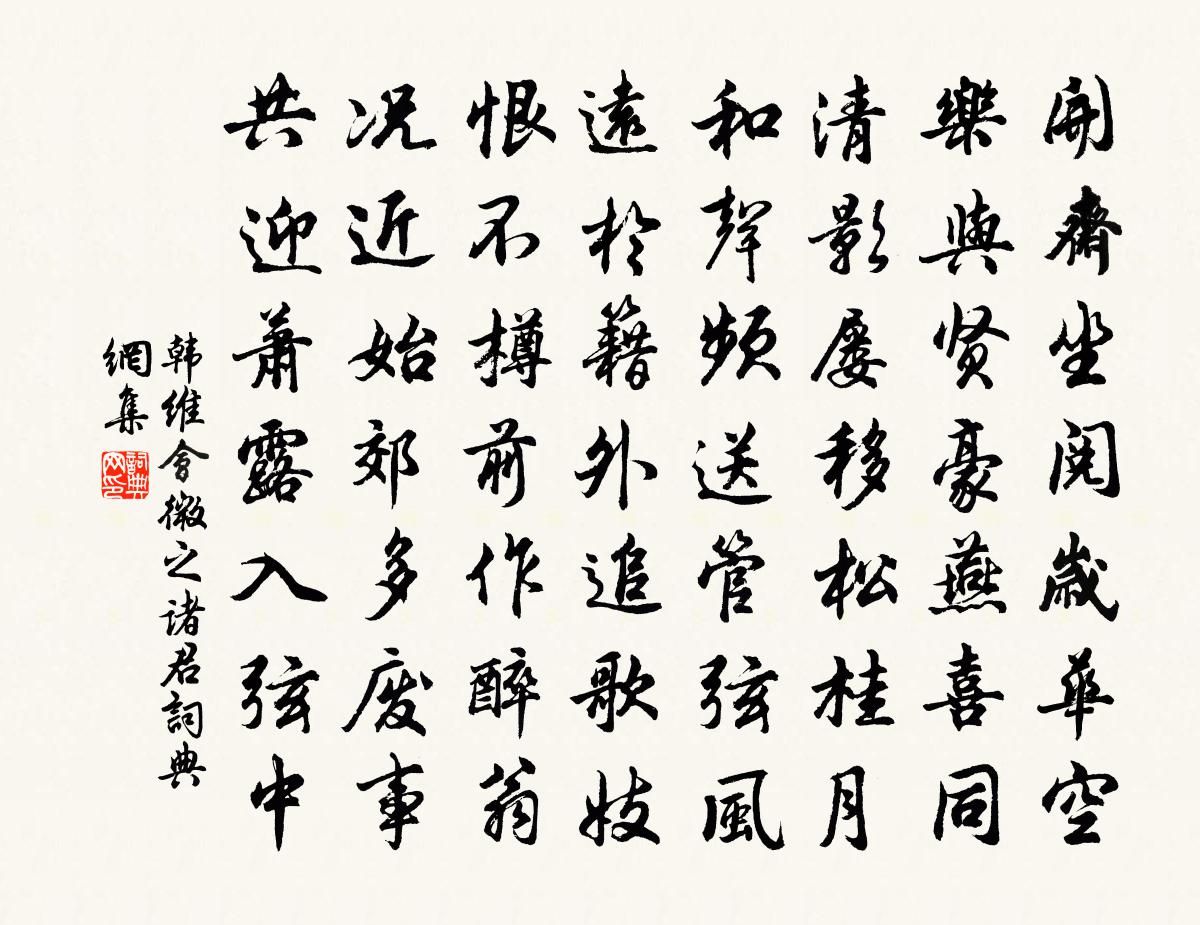 開齋坐閱歲華空
樂與贤豪燕喜同
清影屡移松桂月
和聲頻送管弦風
遠於籍外追歌妓
恨不樽前作醉翁
况近始郊多废事
共迎萧露入弦中
韩维會微之诸君詞典
網集
詞典网印